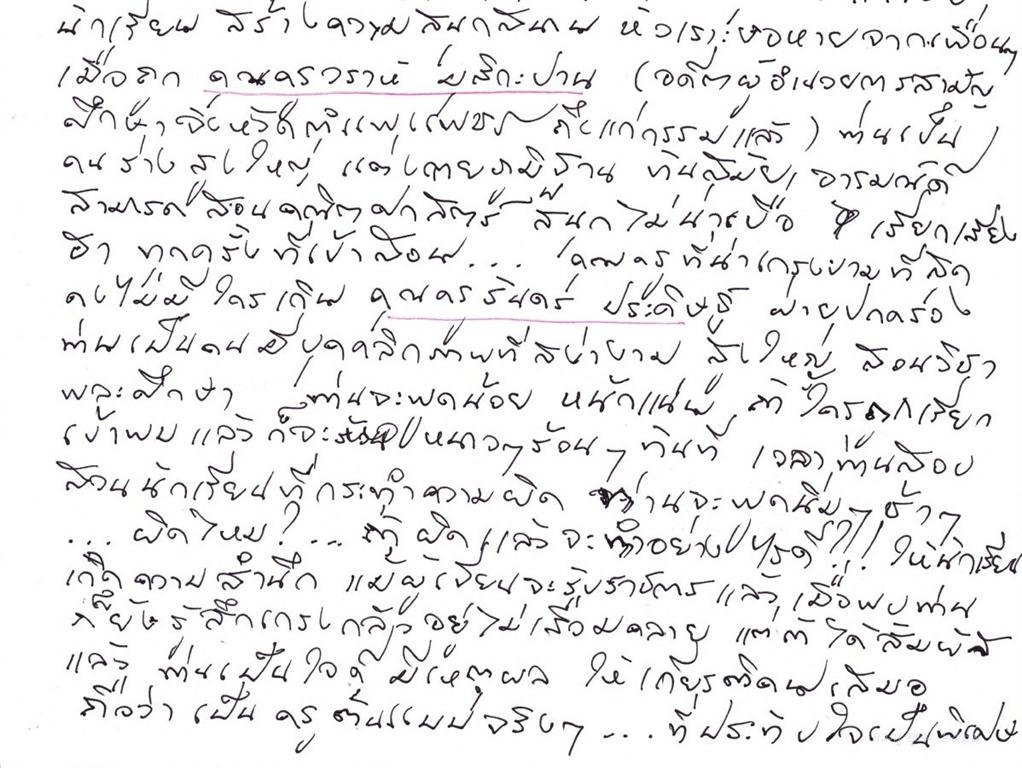 นักเรียน สร้างความสนุกสนาน หัวเราะงอหายจากเพื่อนๆ
เมื่อถูก คุณครูวราห์ มลิกะปาน (อดีตผู้อำนวยการสามัญ
ศึกษาจังหวัดกำแพงเพชร ถึงแก่กรรมแล้ว) ท่านเป็น
คนร่างสูงใหญ่ แต่งกายภูมิฐาน ทันสมัย อารมณ์ดี
สามารถสอนคณิตศาสตร์ สนุกไม่น่าเบื่อ เรียกเสียง
ฮา ทุกครั้งที่เข้าสอน... คุณครูที่น่าเกรงขามที่สุด
คงไม่มีใครเกิน คุณครูรินทร์ ประดิษฐ์ ฝ่ายปกครอง
ท่านเป็นคนมีบุคคลิกภาพที่สง่างาม สูงใหญ่ สอนวิชา
พละศึกษา ท่านจะพูดน้อย หนักแน่น ถ้าใครถูกเรียก
เข้าพบแล้วก็จะหนาวๆร้อนๆทันที เวลาท่านสอบ
สวนนักเรียนที่กระทำความผิด ท่านจะพูดนิ่มๆช้าๆ
...ผิดไหม?... ถ้าผิดแล้วจะทำอย่างไรดี...!! ให้นักเรียน
เกิดความสำนึก แม้ผู้เขียนจะรับราชการแล้ว เมื่อพบท่าน
ก็ยังรู้สึกเกรงกลัวอยู่ไม่เสื่อมคลาย แต่ถ้าได้สัมผัส
แล้ว ท่านเป็นใจดี มีเหตุผล ให้เกียรติคนเสมอ
ถือว่าเป็นครูต้นแบบจริงๆ.... ที่ประทับใจเป็นพิเศษ